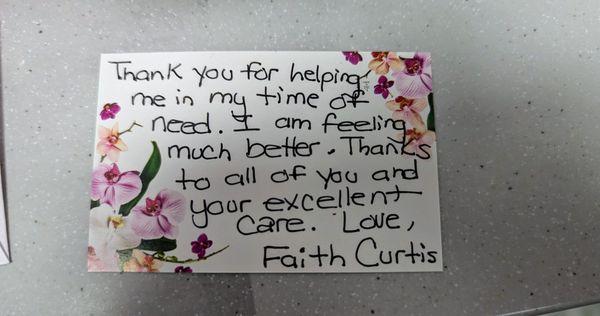 Thank you for helping
me in my time of
need. I am feeling
much better. Thanks
to all of you and
your excellent
care. Love,
Faith Curtis